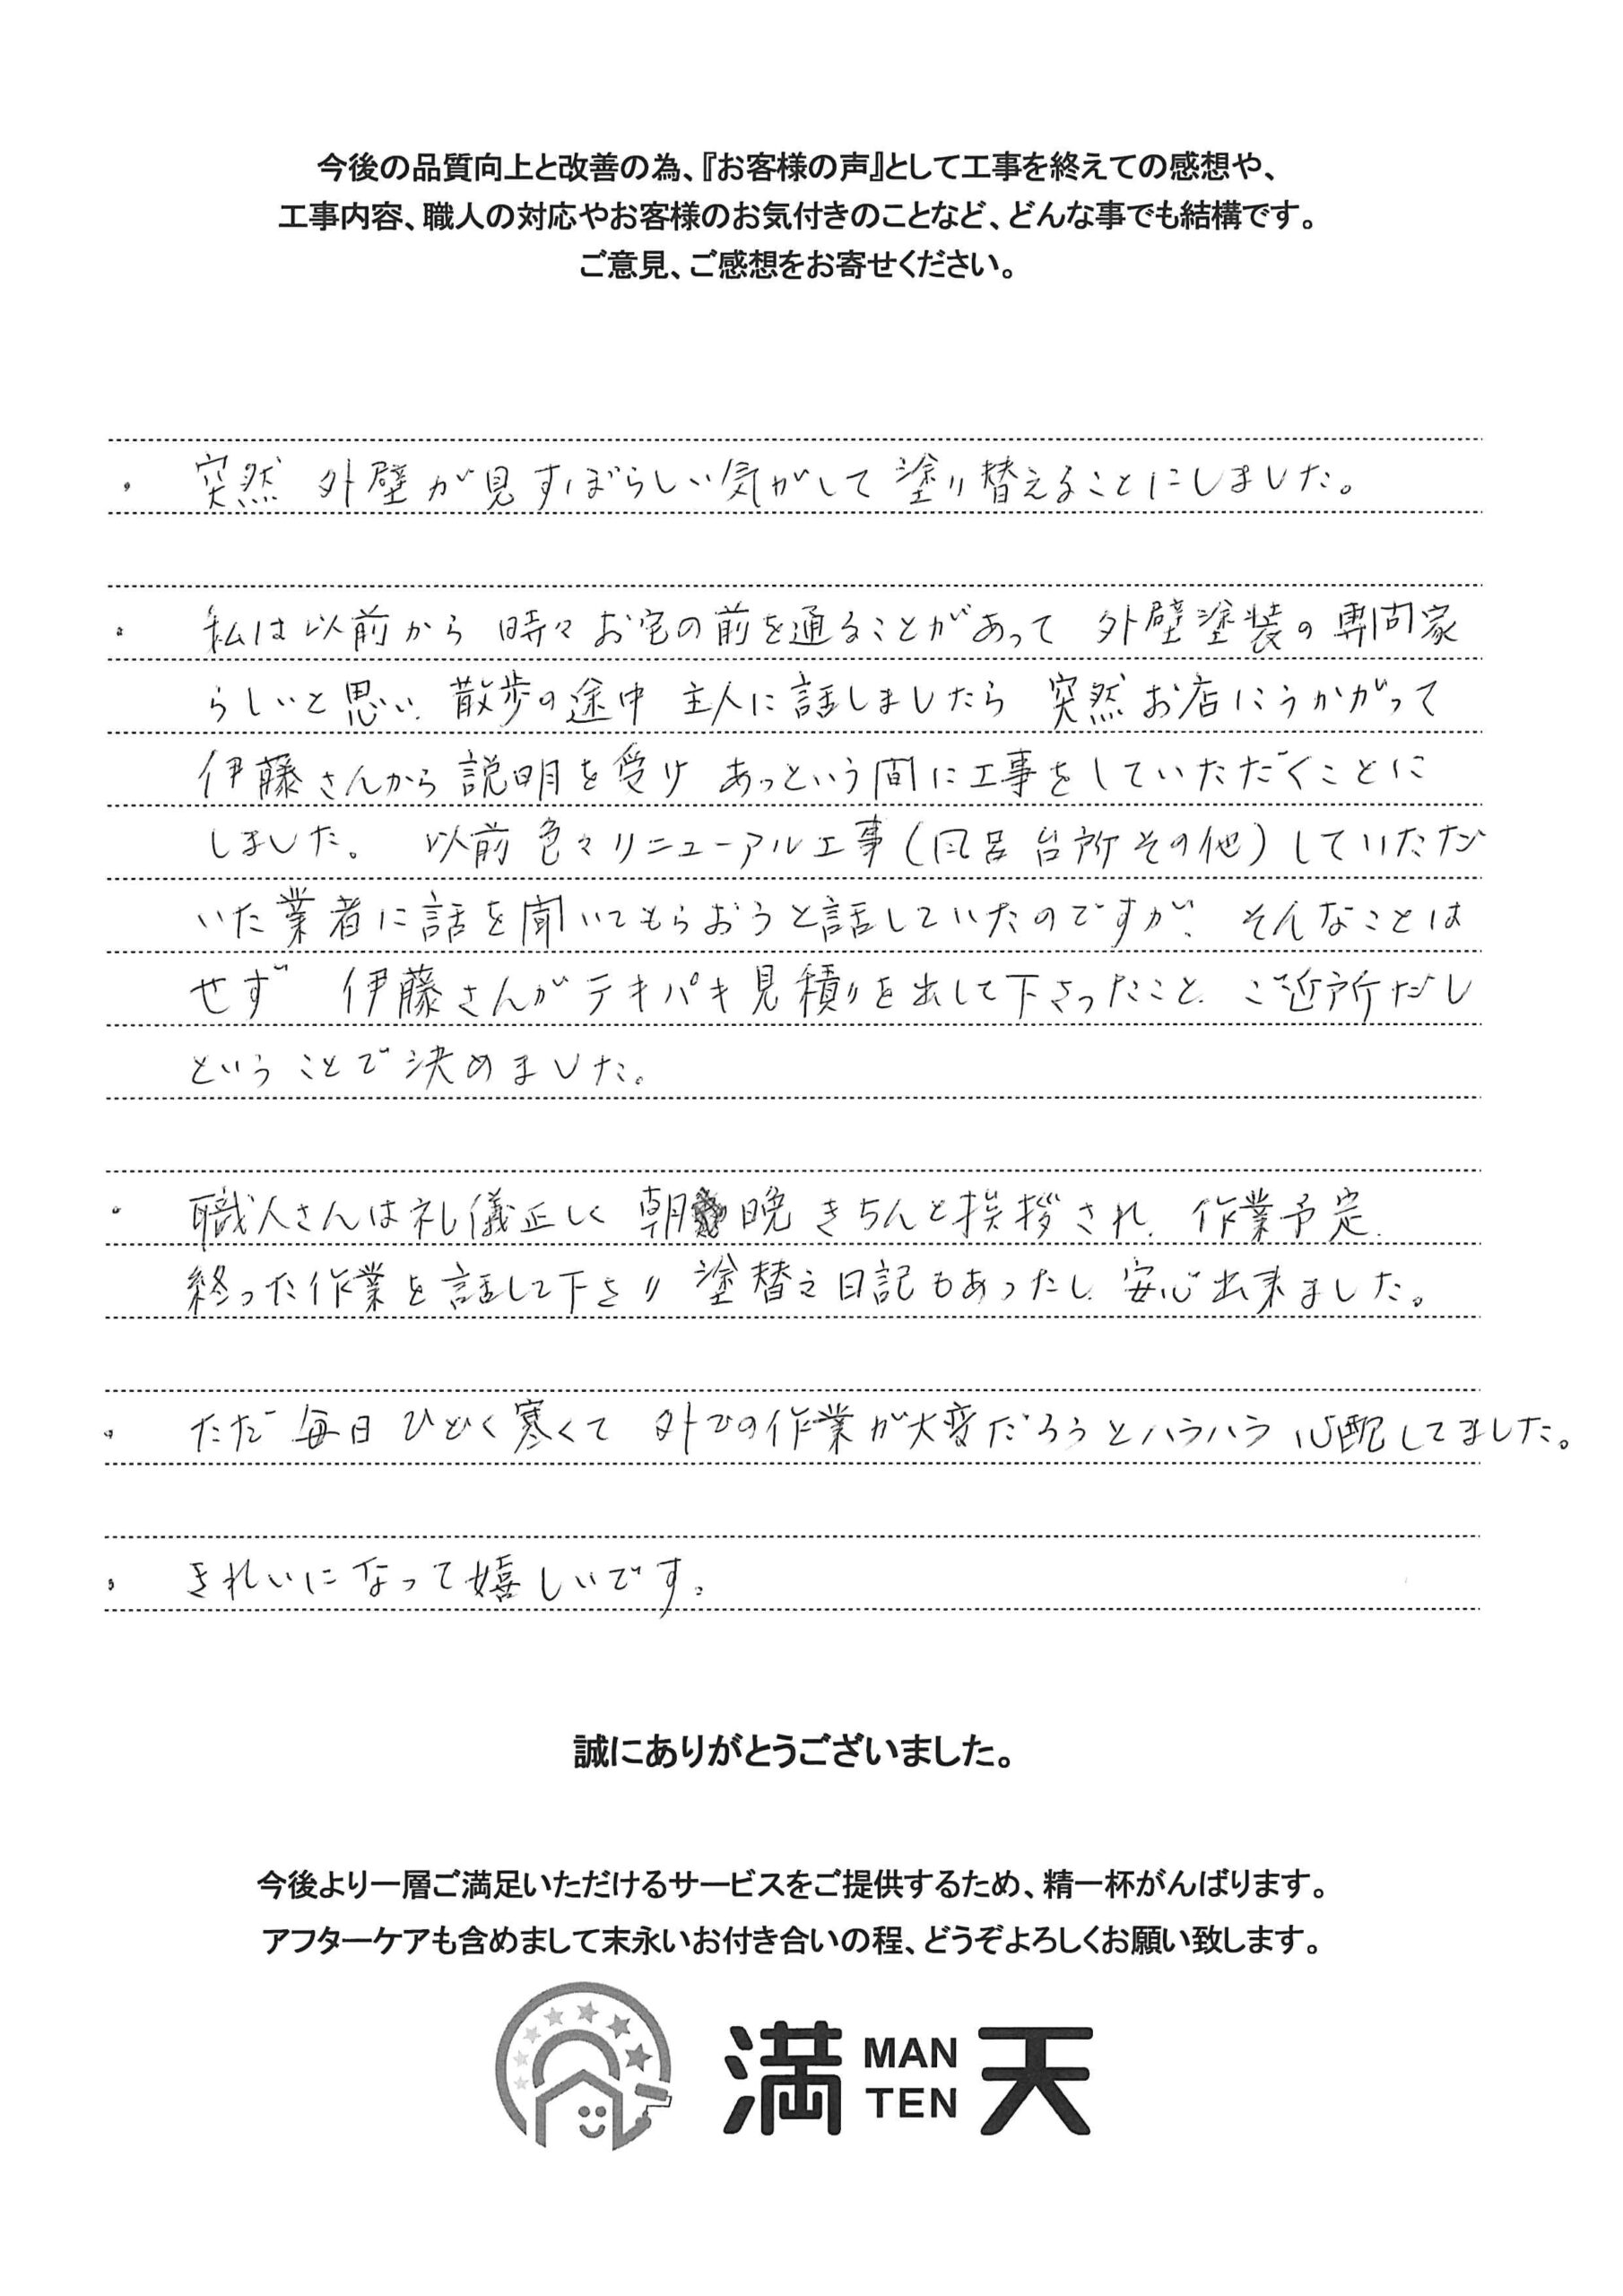 今後の品質向上と改善の為、『お客様の声』として工事を終えての感想や、
工事内容、職人の対応やお客様のお気付きのことなど、どんな事でも結構です。
ご意見、ご感想をお寄せください。
・ 突然 外壁が見すぼらしい気がして 塗り替えることにしました。
・ 私は以前から 時々 お宅の前を通ることがあって 外壁塗装の専門家
らしいと思い、散歩の途中 主人に話しましたら 突然お店にうかがって
伊藤さんから説明を受け あっという間に工事をしていただくことに
しました。 以前 色々リニューアル工事(風呂 台所 その他)していただ
いた業者に話を聞いてもらおうと話していたのですが、そんなことは
せず 伊藤さんがテキパキ見積りを出して下さったこと、ご近所だし
ということで決めました。
・ 職人さんは礼儀正しく 朝 晩 きちんと挨拶され、作業予定、
終った作業を話して下さり 塗替え日記もあったし、安心出来ました。
・ ただ 毎日 ひどく寒くて 外での作業が大変だろうとハラハラ心配してました。
・ きれいになって嬉しいです。
誠にありがとうございました。
今後より一層ご満足いただけるサービスをご提供するため、精一杯がんばります。
アフターケアも含めまして末永いお付き合いの程、どうぞよろしくお願い致します。
満 MAN TEN 天